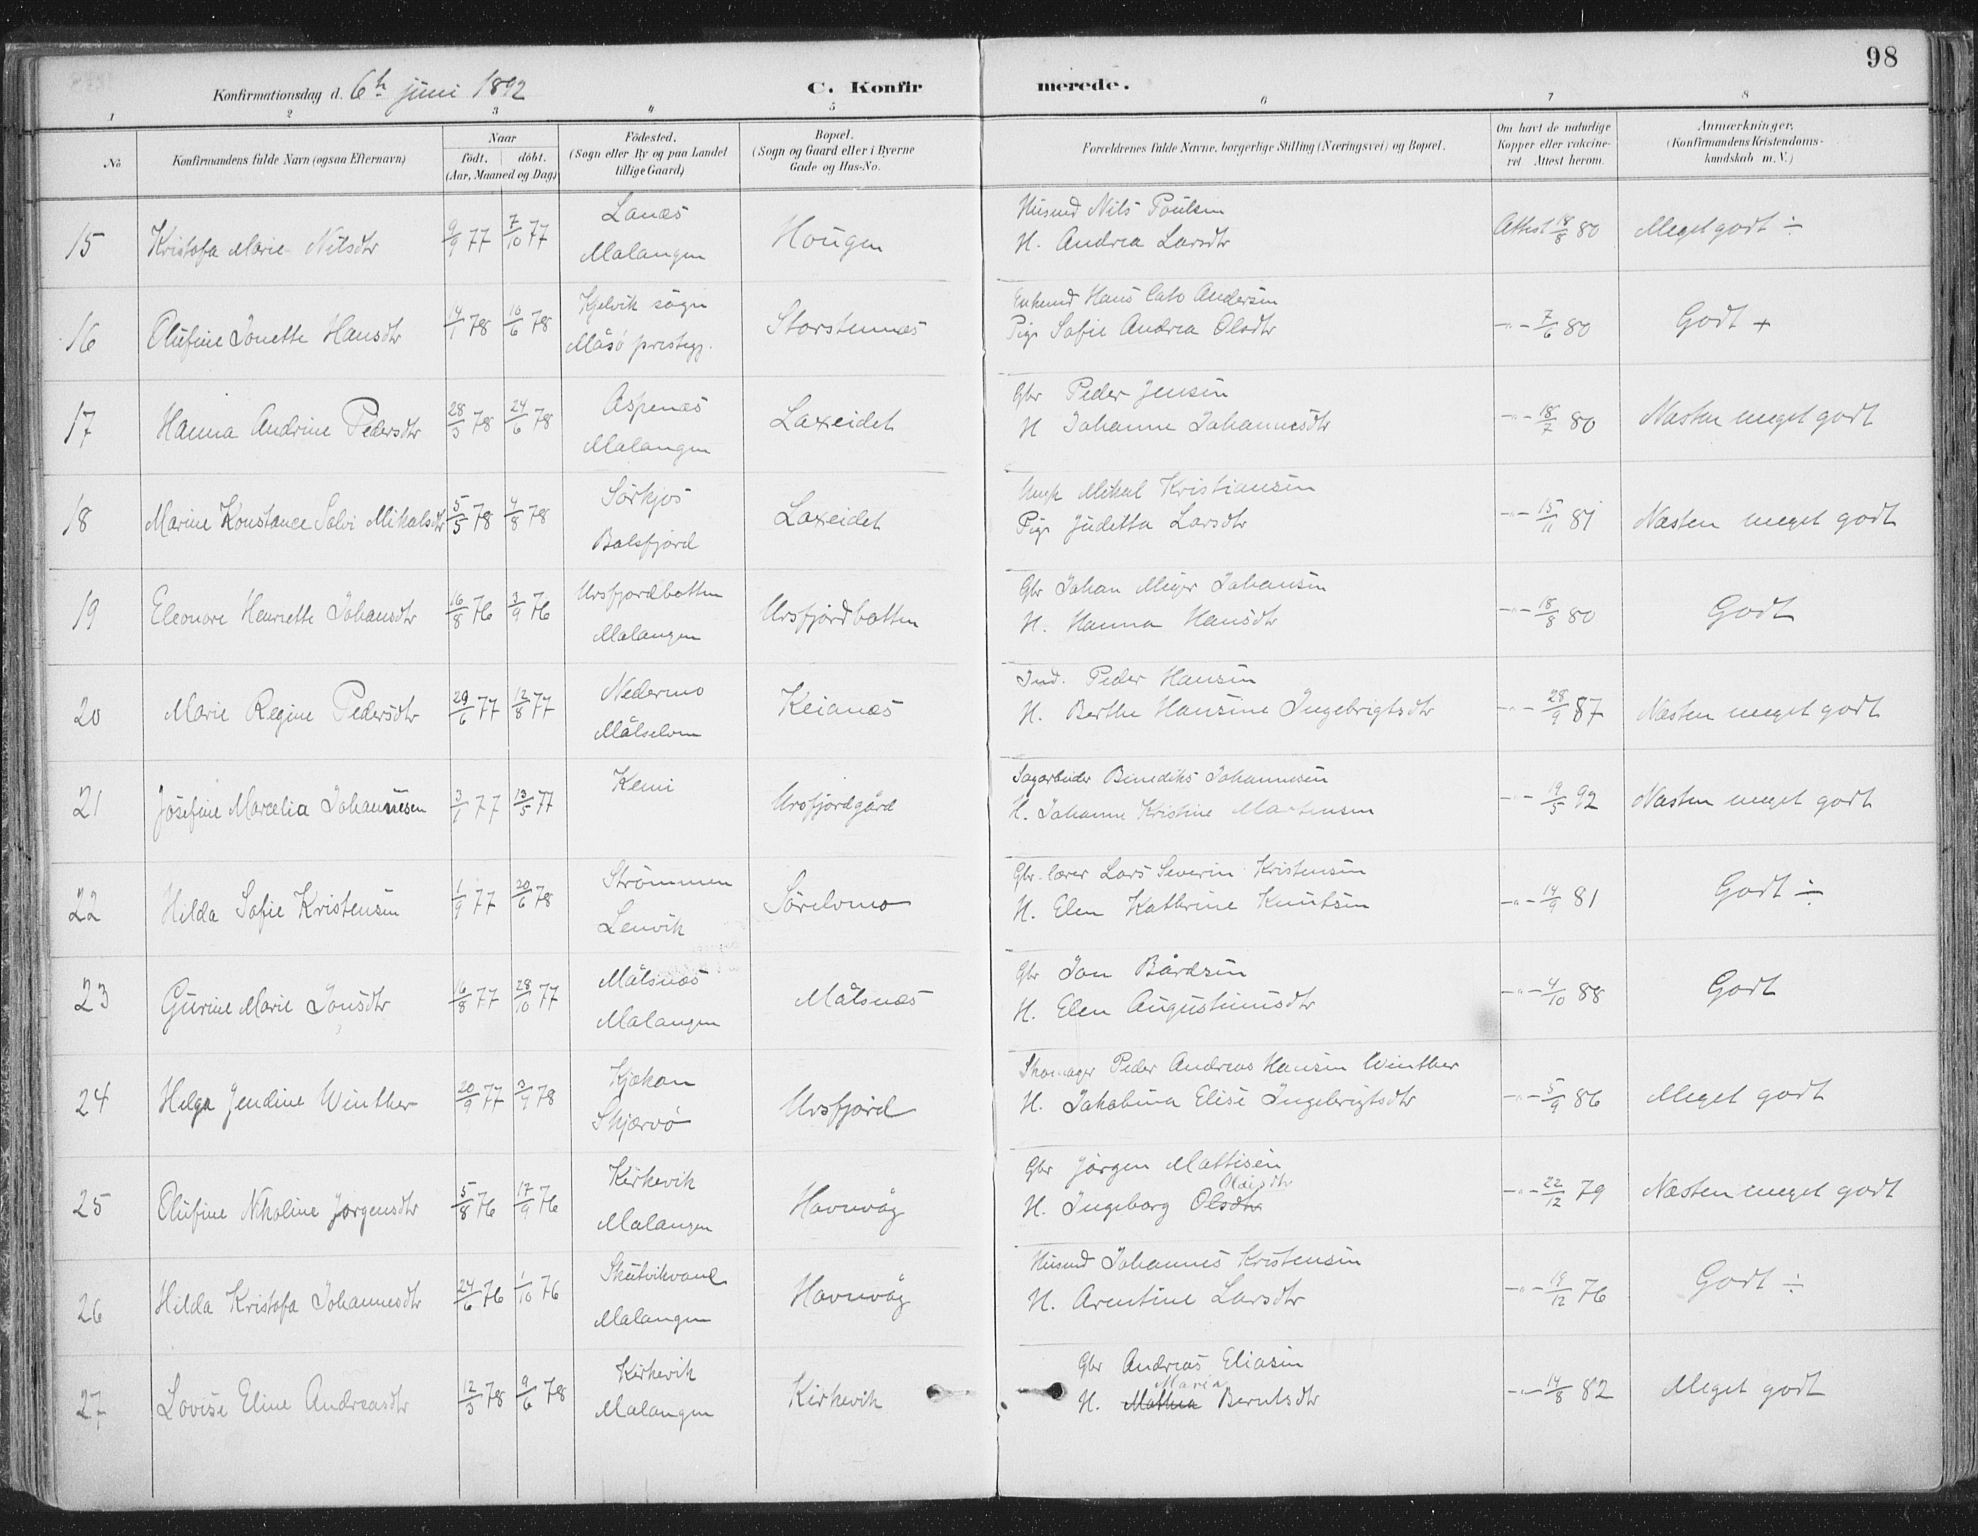 98
Konfirmationsdag d. 6th juni 1892
C. Konfirmerede.
1 2 3 4 5 6 7 8
No
Konfirmandens fulde Navn (ogsaa Efternavn)
Naar
födt. döbt.
(Aar, Maaned og Dag)
Födested.
(Sogn eller By og paa Landet
tillige Gaard)
Bopæl.
(Sogn og Gaard eller i Byerne
Gade og Hus-No.
Forældrenes fulde Navne, borgerlige Stilling (Næringsvei) og Bopæl.
Om havt de naturlige
Kopper eller vakcine-
ret. Attest herom.
Anmærkninger.
(Konfirmandens Kristendoms-
kundskab m.V.)
Lanæs Husmd Nils Poulsen
15 Kristofa Marie Nilsdtr 9/9 77 7/10 77 Malangen Hougen H. Andrea Larsdtr Attest 18/8 80 Meget godt ÷
Kjelvik sogn Enkemd Hans Cato Andersen
16 Olufine Jonette Hansdtr 14/1 78 16/6 78 Måsö prestegj. Storstennæs Pige Sofie Andrea Olsdtr -"- 7/6 80 Godt +
Aspenæs Gbr Peder Jensen
17 Hanna Andrine Pedersdtr 28/3 78 24/6 78 Malangen Laxeidet H Johanne Johannesdtr -"- 18/7 80 Næsten meget godt
Sörkjos Ungk Mikal Kristiansen
18 Marine Konstance Salvi Mikalsdtr 5/5 78 4/8 78 Balsfjord Laxeidet Pige Juditta Larsdtr -"- 15/11 81 Næsten meget godt
Ursfjordbotten Gbr Johan Meyer Johansen
19 Eleonore Henriette Johansdtr 16/8 76 3/9 76 Malangen Ursfjordbotten H. Hanna Hansdtr -"- 18/8 80 Godt
Nedermo Ind. Peder Hansen
20 Marie Regine Pedersdtr 29/6 77 12/8 77 Målselven Keianæs H. Berthe Hansine Ingebrigtsdtr -"- 28/9 87 Næsten meget godt
Kemi Sagarbeider Benediks Johannesen
21 Josefine Marcelia Johannesen 3/1 77 13/5 77 Ursfjordgård H. Johanne Kristine Martensen -"- 19/5 92 Næsten meget godt
Strömmen Gbr. lærer Lars Severin Kristensen
22 Hilda Sofie Kristensen 1/9 77 20/6 78 Lenvik Sörelvmo H. Elen Kathrine Knutsen -"- 14/9 81 Godt ÷
Målsnæs Gbr Jon Bårdsen
23 Gurine Marie Jonsdtr 16/8 77 28/10 77 Malangen Målsnæs H. Elen Augustinusdtr -"- 4/10 88 Godt
Kjækan Skomager Peder Andreas Hansen Winther
24 Helga Jendine Winther 20/9 77 3/4 78 Skjærvö Ursfjord H. Jakobina Elise Ingebrigtsdtr -"- 5/9 86 Meget godt
Kirkevik Gbr Jörgen Mattisen
Olaisdtr
25 Olufine Nikoline Jørgensdtr 5/8 76 17/9 76 Malangen Havnvåg H. Ingeborg Olsdtr -"- 22/12 79 Næsten meget godt
Skutvikvand Husmd Johannes Kristensen
26 Hilda Kristofa Johannesdtr 24/6 76 1/10 76 Malangen Havnvåg H. Arentine Larsdtr -"- 19/12 76 Godt ÷
Kirkevik Gbr Andreas Eliasen
Maria
27 Lovise Eline Andreasdtr 12/3 78 9/6 78 Malangen Kirkevik H. Mathea Berntsdtr -"- 14/8 82 Meget godt